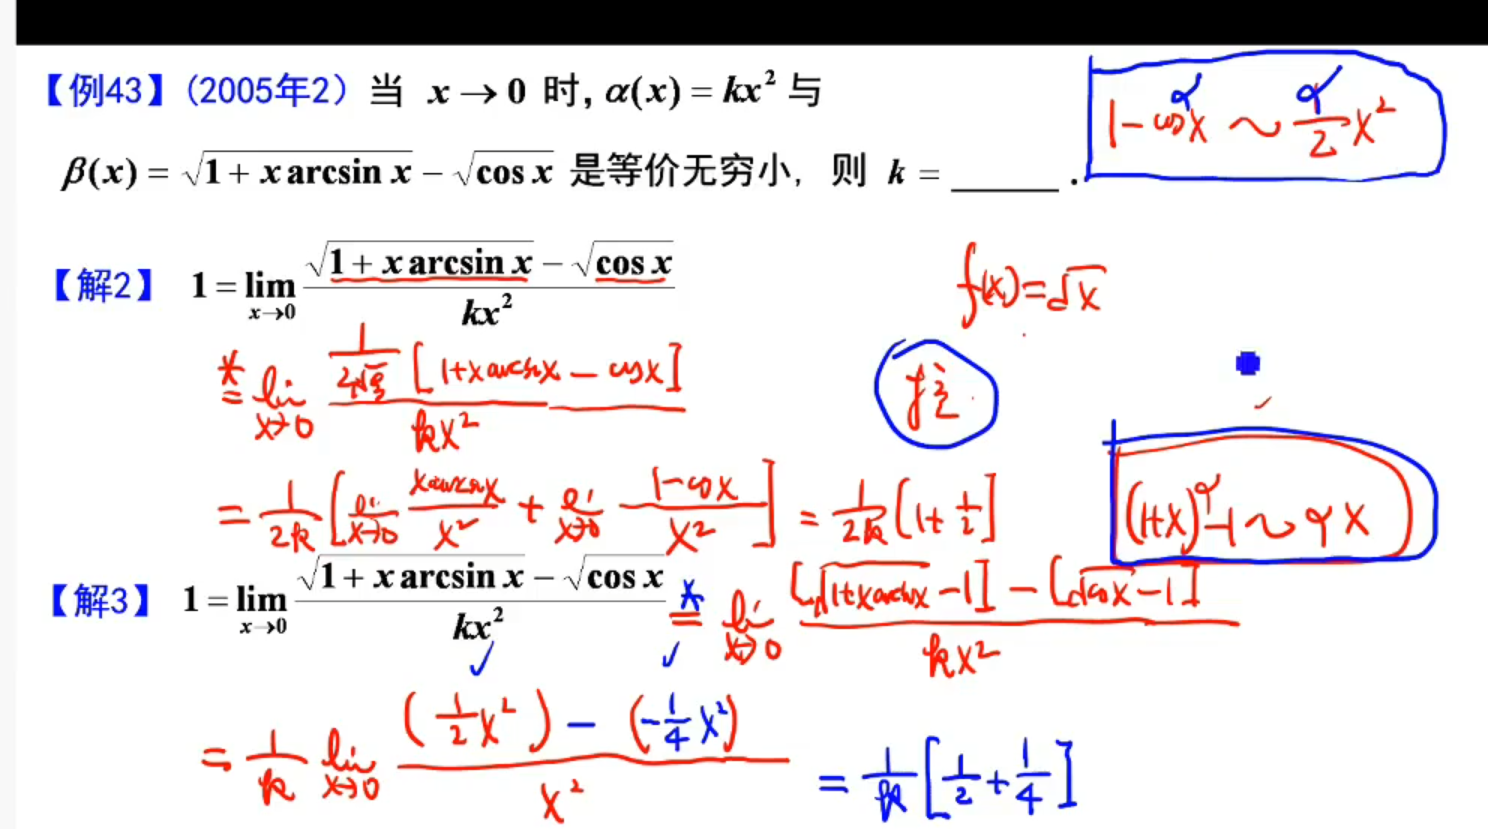 【例43】(2005年2) 当 x→0 时, α(x) = kx² 与
β(x) = √(1 + x arcsin x) − √(cos x) 是等价无穷小, 则 k = ______ .
1 − cos^α x ~ α/2 x²
【解2】 1 = lim_{x→0} (√(1 + x arcsin x) − √(cos x)) / kx²
f(x) = √x
*= lim_{x→0} 1/(2√ξ) [1+x arcsin x − cos x] / kx²
拉
= 1/2k [lim_{x→0} x arcsin x / x² + lim_{x→0} (1−cos x) / x²] = 1/2k [1 + 1/2]
(1+x)^α − 1 ~ αx
【解3】 1 = lim_{x→0} (√(1 + x arcsin x) − √(cos x)) / kx² *= lim_{x→0} ([√(1+x arcsin x) − 1] − [√(cos x) − 1]) / kx²
= 1/k lim_{x→0} ((1/2 x²) − (−1/4 x²)) / x² = 1/k [1/2 + 1/4]